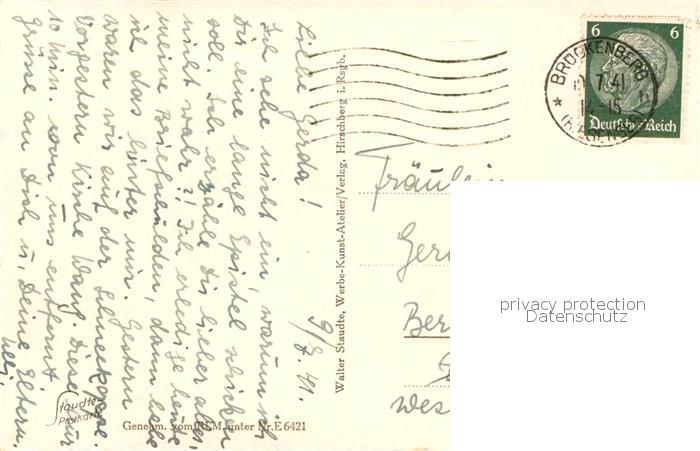 6 6
BRÜCKENBERG
7.41
14-15
Deutsches Reich
9/7. 41.
Liebe Gerda!
Ich sehe nicht ein, warum ich
Dir eine lange Epistel schicken
soll. Ich erzähle Dir lieber alles,
nicht wahr?! Ich erledige heute
meine Briefschulden, dann habe
ich das hinter mir. Gestern
waren wir auf der Schneekoppe.
Vorgestern Kirche Wang. Diese nur
10 Min. von uns entfernt
Grüsse an Dich u. Deine Eltern.
Walter Staudte, Werbe-Kunst-Atelier/Verlag, Hirschberg i. Rsgb.
Fräulein
Ger
Ber
Wes
Staudte-
Postkarte
Genehm. vom RLM. unter Nr. E 6421
privacy protection
Datenschutz